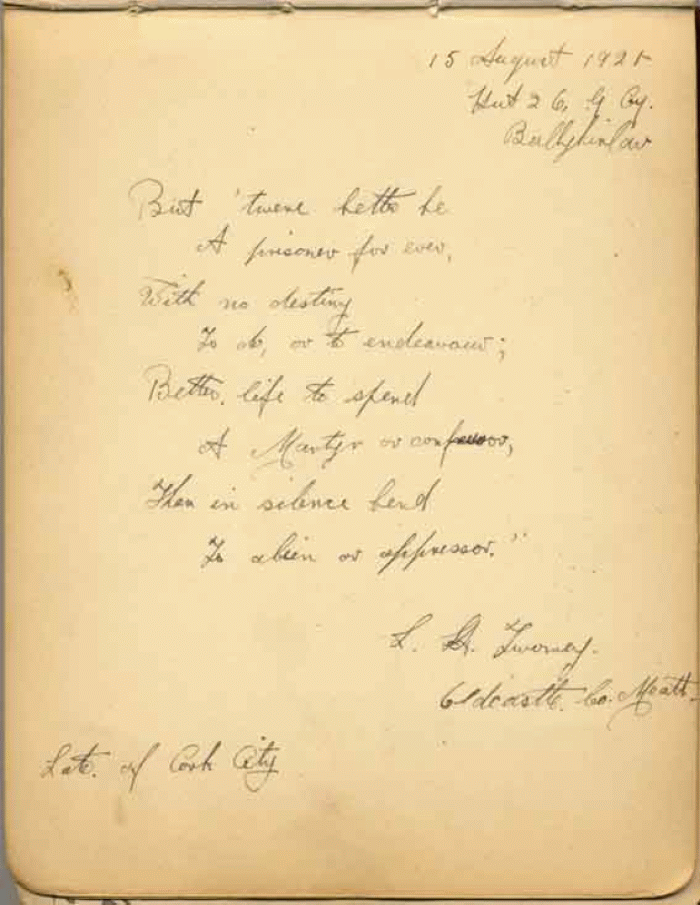 15 August 1921
Hut 26, G Cy.
Ballykinlar
But 'twere better be
A prisoner for ever,
With no destiny
To do, or to endeavour;
Better life to spend
A Martyr or confessor,
Than in silence bend
To alien or oppressor."
L. Twomey.
Oldcastle. Co. Meath.
Late. of Cork City